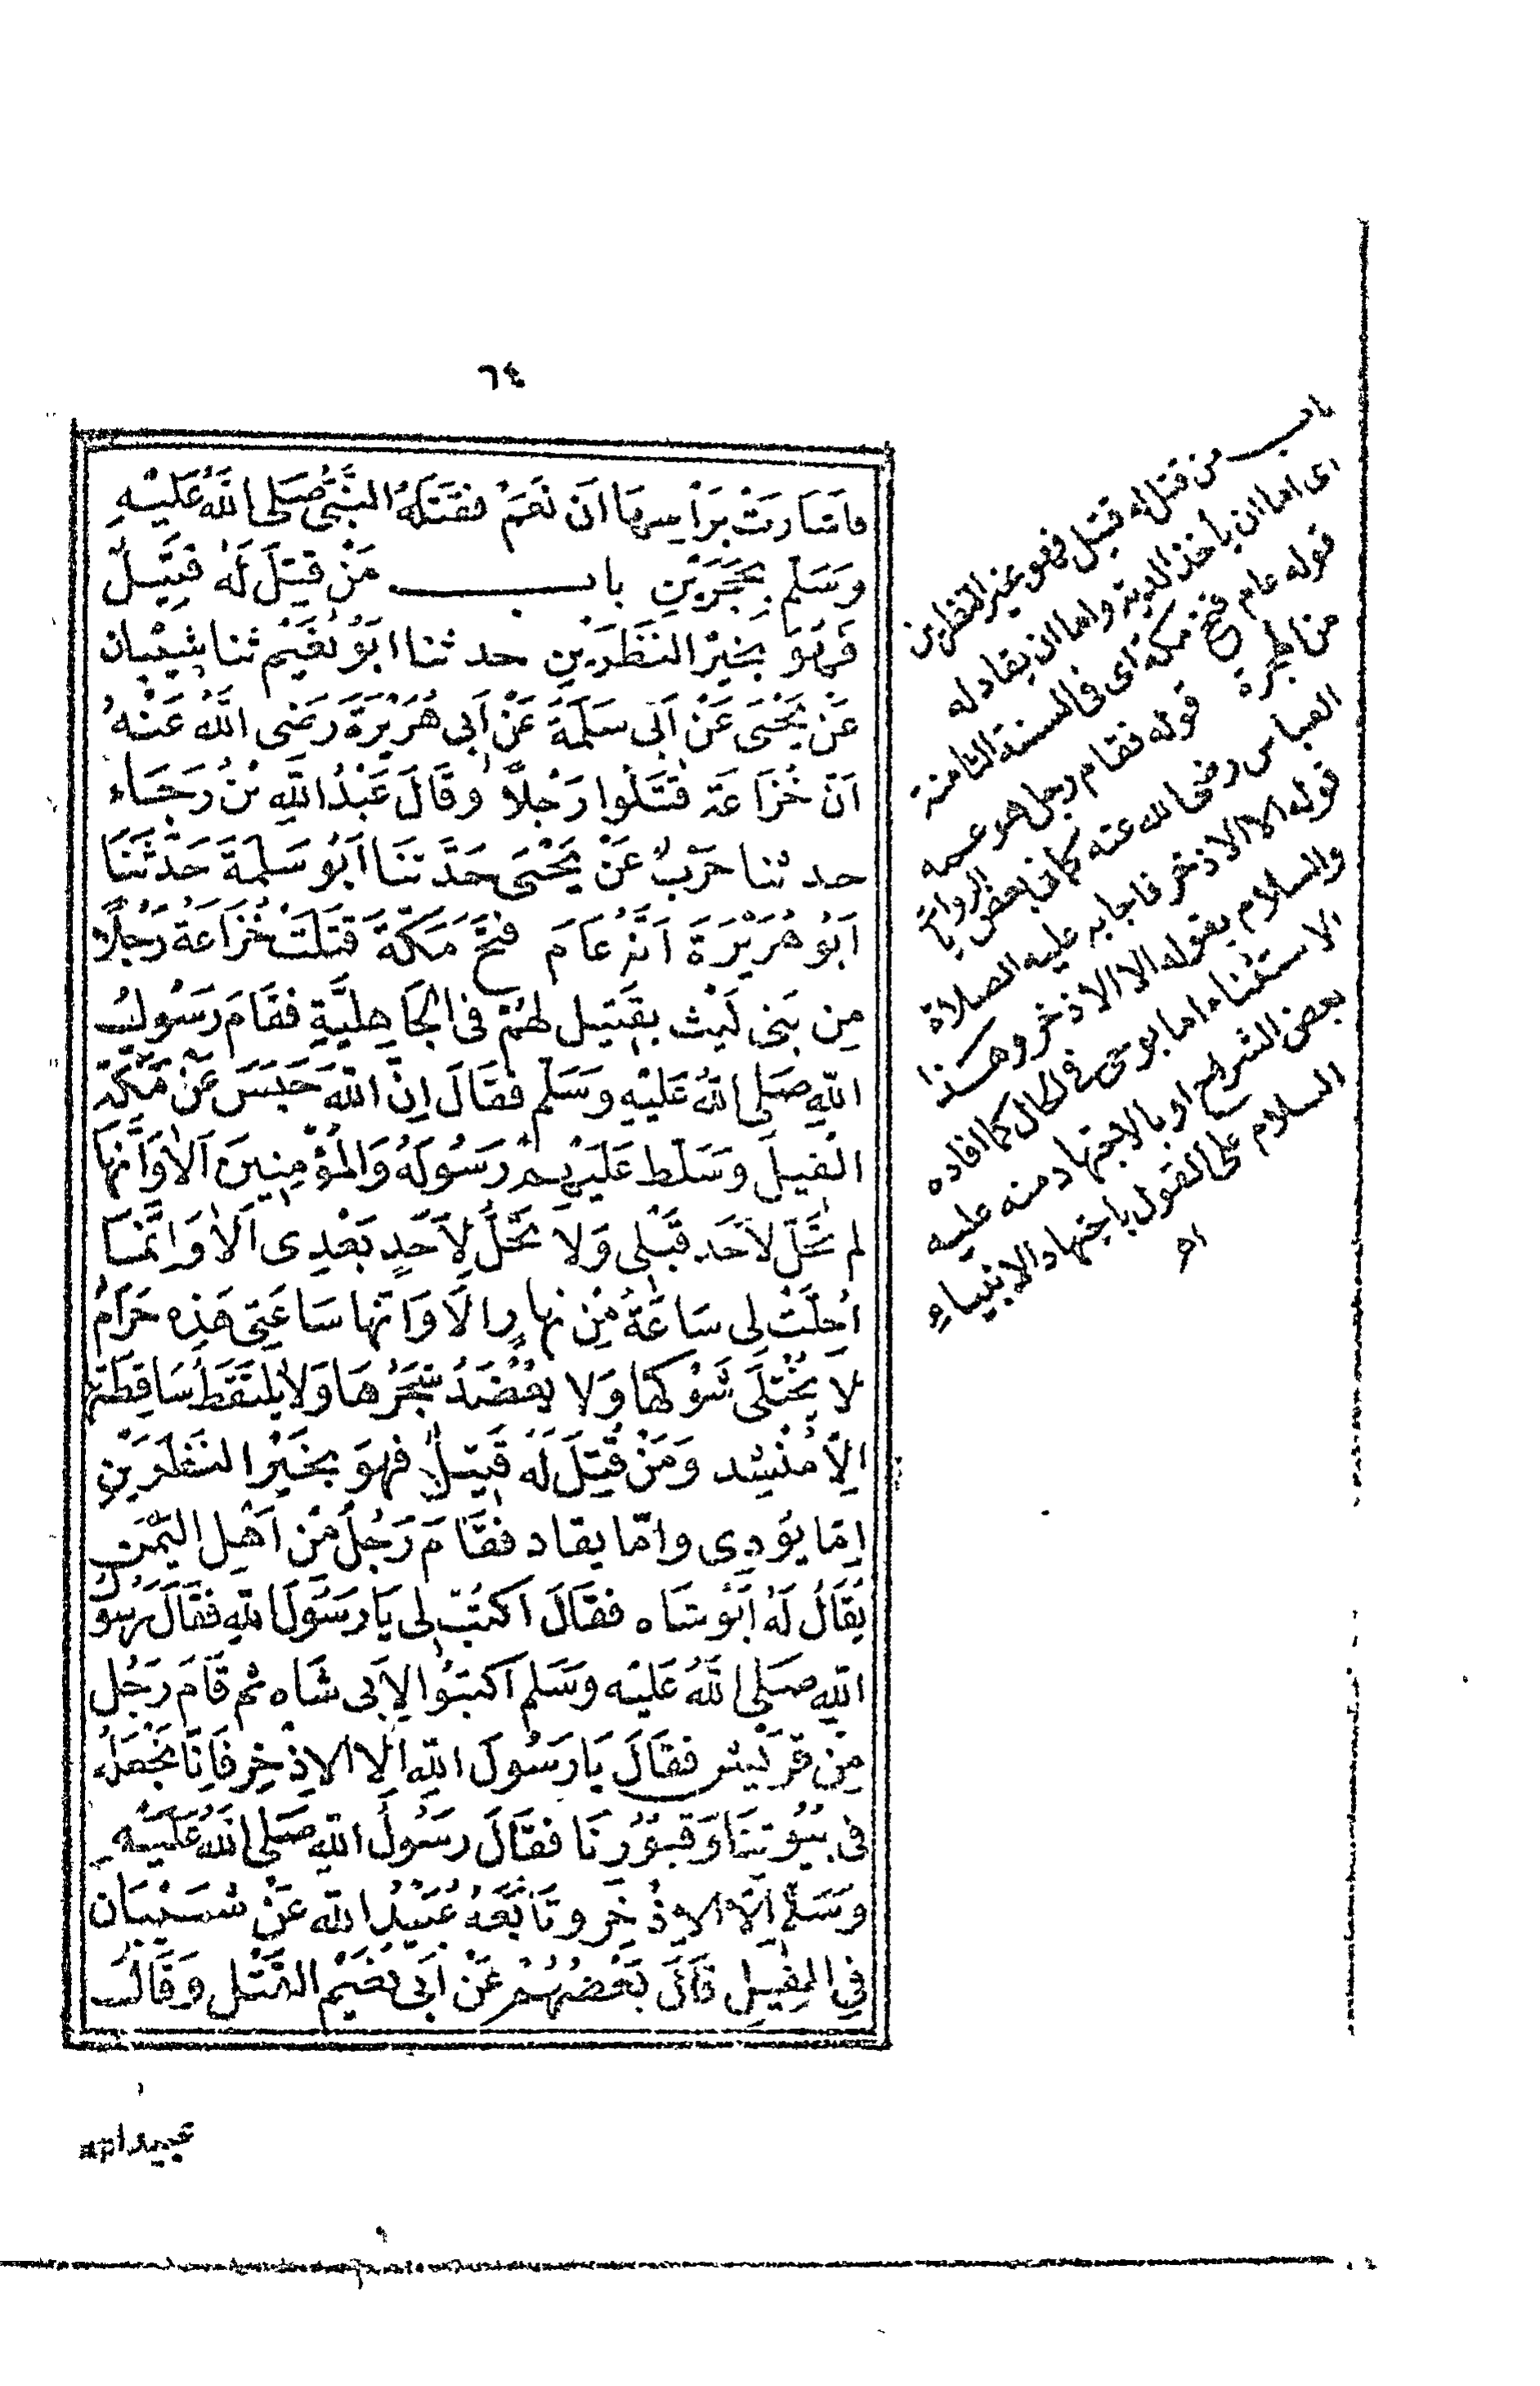 ٦٤
فاشارت برأسها ان نعم فقتله النبي صلى الله عليه
وسلم بحجرين باب من قتل له قتيل
فهو بخير النظرين حدثنا ابو نعيم ثنا شيبان
عن يحيى عن ابي سلمة عن ابي هريرة رضي الله عنه
ان خزاعة قتلوا رجلا وقال عبد الله بن رجاء
حدثنا حرب عن يحيى حدثنا ابو سلمة حدثنا
ابو هريرة انه عام فتح مكة قتلت خزاعة رجلا
من بني ليث بقتيل لهم في الجاهلية فقام رسول
الله صلى الله عليه وسلم فقال ان الله حبس عن مكة
الفيل وسلط عليهم رسوله والمؤمنين الا وانها
لم تحل لاحد قبلي ولا تحل لاحد بعدي الا وانما
احلت لي ساعة من نهار الا وانها ساعتي هذه حرام
لا يختلى شوكها ولا يعضد شجرها ولا يلتقط ساقطتها
الا منشد ومن قتل له قتيل فهو بخير النظرين
اما يودى واما يقاد فقام رجل من اهل اليمن
يقال له ابو شاه فقال اكتب لي يا رسول الله فقال رسول
الله صلى الله عليه وسلم اكتبوا لابي شاه ثم قام رجل
من قريش فقال يا رسول الله الا الاذخر فانا نجعله
في بيوتنا وقبورنا فقال رسول الله صلى الله عليه
وسلم الا الاذخر وتابعه عبيد الله عن شيبان
في الفيل قال بعضهم عن ابي نعيم القتل وقال
عبيد الله
باب من قتل له قتيل فهو بخير النظرين
اى اما ان ياخذ الدية واما ان يقاد له
قوله عام فتح مكة اى في السنة الثامنة
من الهجرة قوله فقام رجل هو عمه
العباس رضي الله عنه كما في بعض الروايات
قوله الا الاذخر فاجابه عليه الصلاة
والسلام بقوله الا الاذخر وهذا
الاستثناء اما بوحي في الحال كما افاده
بعض الشراح او بالاجتهاد منه عليه
السلام على القول باجتهاد الانبياء
اه